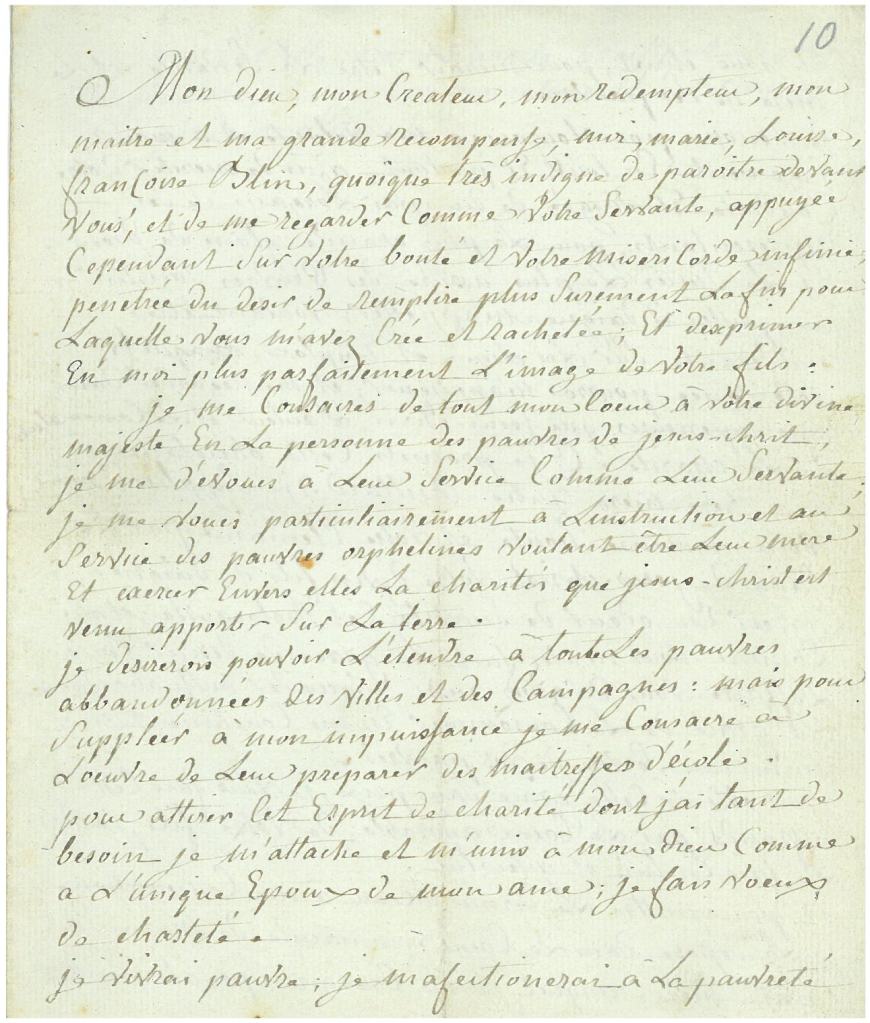 10
O Mon dieu, mon Createur, mon redempteur, mon
maitre et ma grande recompense, moi, marie, Louise,
françoise Blin, quoique très indigne de paroitre devant
vous, et de me regarder Comme votre Servante, appuyée
Cependant Sur votre bonté et votre Misericorde infinie,
penetrée du desir de remplire plus Surement La fin pour
Laquelle vous m'avez Crée et rachetée; Et dexprimer
En moi plus parfaitement L'image de votre fils :
je me Consacres de tout mon Coeur à votre divine
majesté En La personne des pauvres de jesus-chrit,
je me d'evoues à Leur Service Comme Leur Servante;
je me voues particuliairement à Linstruction et au
Service des pauvres orphelines voulant être Leur mere
Et exercer Envers elles La charités que jesus-christ est
venu apporter Sur La terre.
je desirerois pouvoir L'étendre à toute Les pauvres
abbandonnées des villes et des Campagnes : mais pour
Suppléér à mon impuissance je me Consacre à
L'oeuvre de Leur preparer des maitresses d'école.
pour attirer Cet Esprit de charité dont j'ai tant de
besoin je m'attache et m'unis à mon Dieu Comme
a L'unique Epoux de mon ame; je fais voeux
de chasteté.
je vivrai pauvre; je mafectionerai à La pauvreté